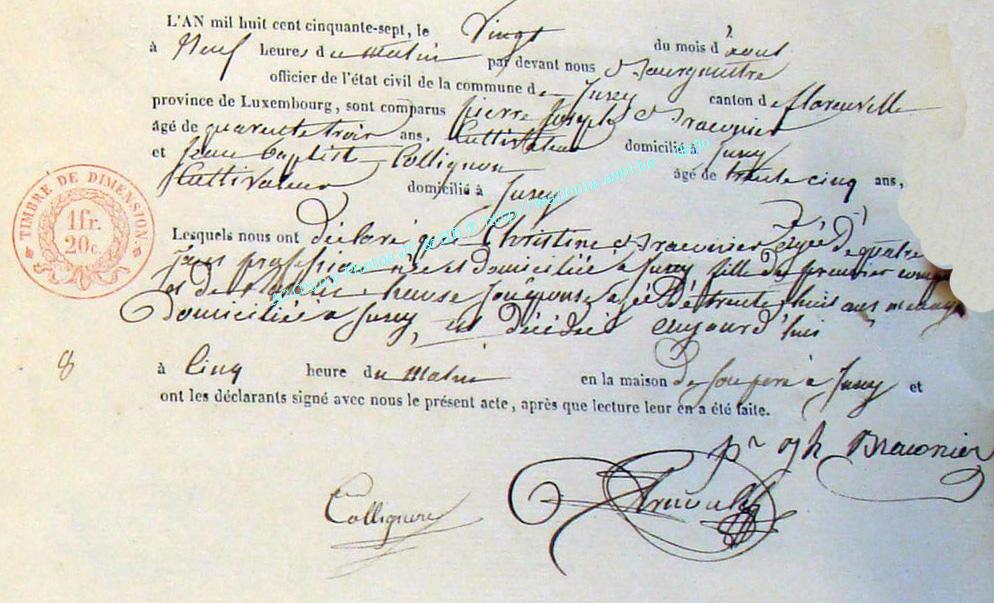 L'AN mil huit cent cinquante-sept, le Vingt du mois d'aout
à Neuf heures du matin par devant nous Bourgmestre
officier de l'état civil de la commune de Jusey canton de florenville
province de Luxembourg, sont comparus pierre Joseph Braconier
âgé de quarente trois ans, Cultivateur domicilié à Jusey
et Jean baptist Collignon âgé de trente cinq ans,
Cultivateur domicilié à Jusey
TIMBRE DE DIMENSION.
1 fr.
20 c.
Lesquels nous ont déclaré que Christine Braconier agée de quatre
jours profession née et domiciliée à Jusey fille du premier comp
et de son épouse agée de trente huit ans menagere
domiciliée a Jusey, est décédée aujourd'hui
8
à Cinq heure du Matin en la maison de son pere à Jusey et
ont les déclarants signé avec nous le présent acte, après que lecture leur en a été faite.
pr jph Braconier
Collignon